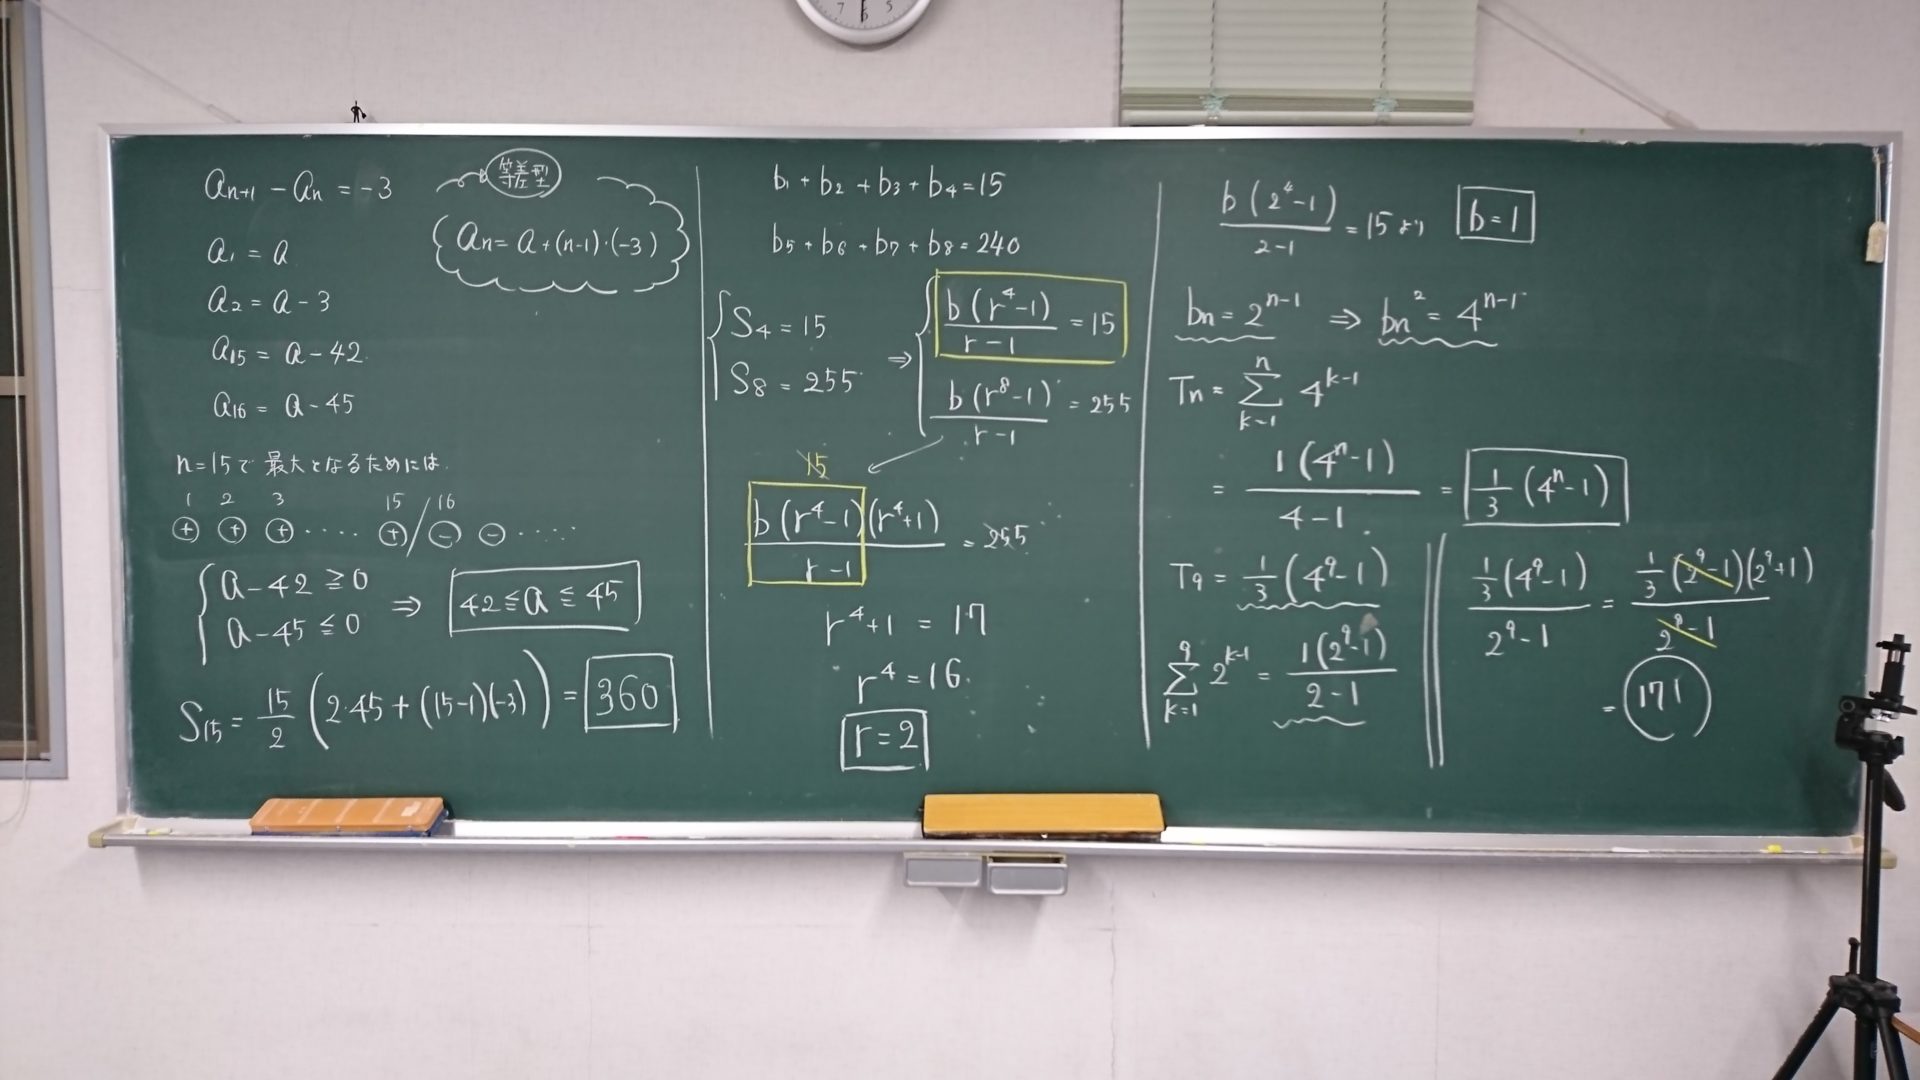 7 6 5
a_{n+1} - a_n = -3
等差型
a_1 = a
a_n = a + (n-1)・(-3)
a_2 = a - 3
a_15 = a - 42
a_16 = a - 45
n=15で最大となるためには
1 2 3 15 / 16
⊕ ⊕ ⊕ ・・・・ ⊕ / ⊖ ⊖ ・・・・・
{ a - 42 ≧ 0
a - 45 ≦ 0
⇒ 42 ≦ a ≦ 45
S_15 = 15/2 (2・45 + (15-1)(-3)) = 360
b_1 + b_2 + b_3 + b_4 = 15
b_5 + b_6 + b_7 + b_8 = 240
{ S_4 = 15
S_8 = 255
⇒ { b(r^4-1)/(r-1) = 15
b(r^8-1)/(r-1) = 255
15
b(r^4-1)(r^4+1)/(r-1) = 255
r^4+1 = 17
r^4 = 16
r = 2
b(2^4-1)/(2-1) = 15 より b = 1
b_n = 2^{n-1} ⇒ b_n^2 = 4^{n-1}
T_n = Σ_{k=1}^{n} 4^{k-1}
= 1(4^n-1)/(4-1) = 1/3 (4^n-1)
T_9 = 1/3 (4^9-1)
Σ_{k=1}^{9} 2^{k-1} = 1(2^9-1)/(2-1)
1/3 (4^9-1)/(2^9-1) = 1/3 (2^9-1)(2^9+1)/(2^9-1)
= 171